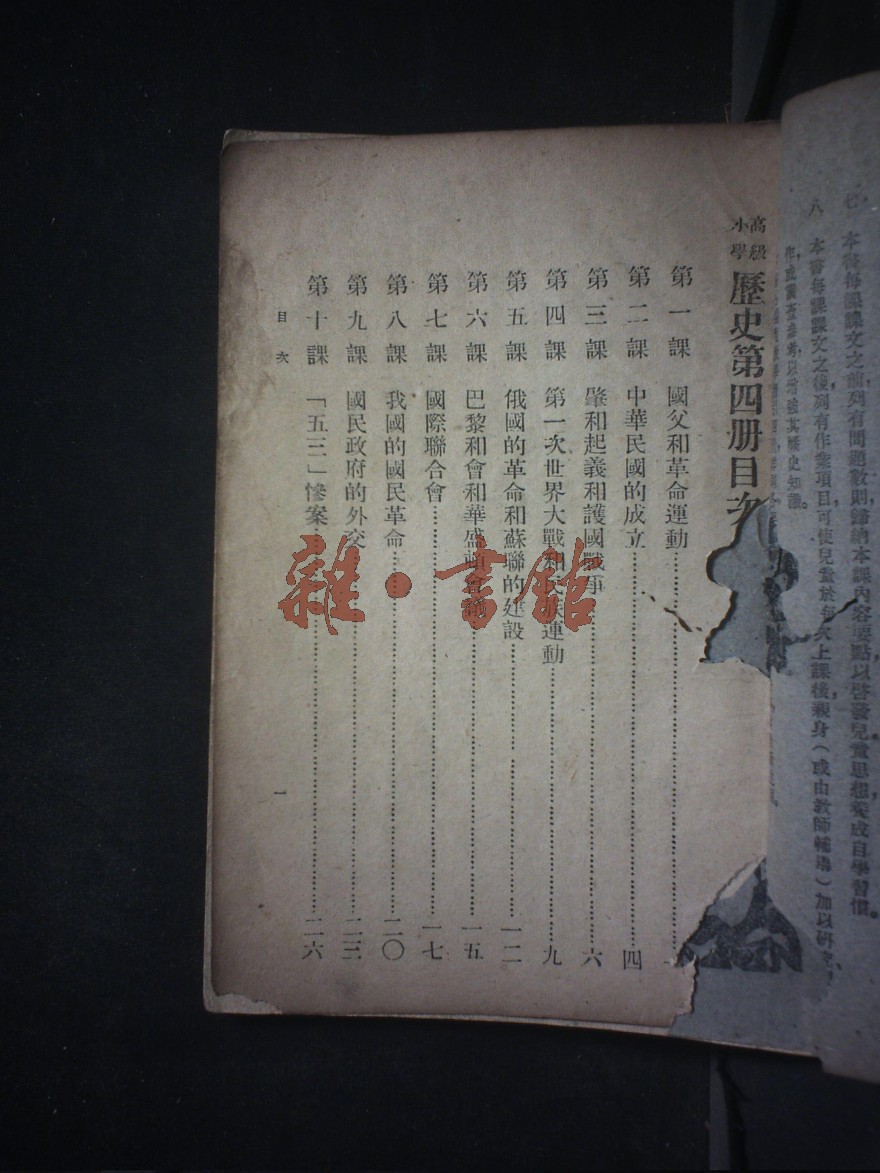 七 本書每課課文之前列有問題數則歸納本課內容要點以啓發兒童思想養成自學習慣。
八 本書每課課文之後列有作業項目可使兒童於每次上課後親身(或由教師輔導)加以研究,
作或調查參考以增強其歷史知識。
高級小學 歷史第四册目次
第一課 國父和革命運動
第二課 中華民國的成立 四
第三課 肇和起義和護國戰事 六
第四課 第一次世界大戰和民族運動 九
第五課 俄國的革命和蘇聯的建設 一二
第六課 巴黎和會和華盛頓會議 一五
第七課 國際聯合會 一七
第八課 我國的國民革命 二〇
第九課 國民政府的外交 二三
第十課 「五三」慘案 二六
目次 一
雜·書館